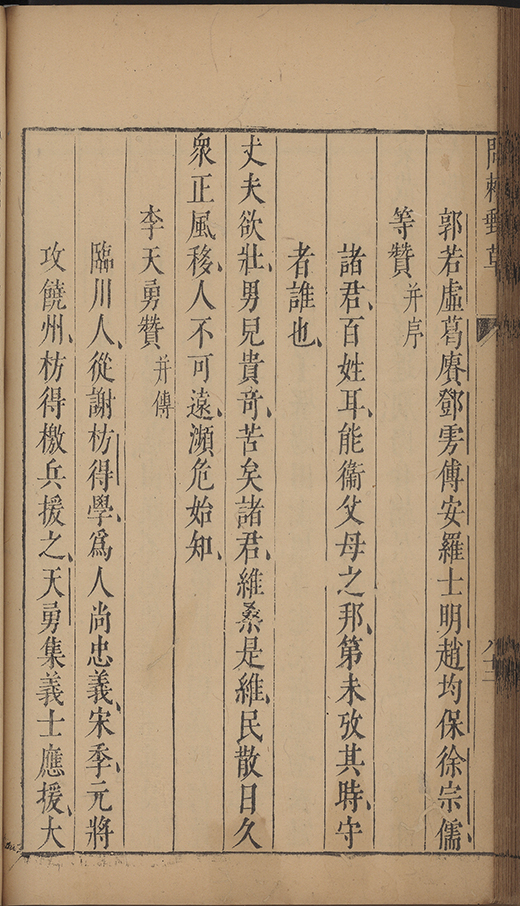 問棘郵草
八十三
郭若虛葛賡鄧雱傅安羅士明趙均保徐宗儒
等贊并序
諸君、百姓耳、能衞父母之邦、第未攷其時、守
者誰也、
丈夫欲壯、男兒貴奇、苦矣諸君、維桑是維、民散日久
衆正風移、人不可遠、瀕危始知、
李天勇贊并傳
臨川人、從謝枋得學、爲人尚忠義、宋季元將
攻饒州、枋得檄兵援之、天勇集義士應援、大